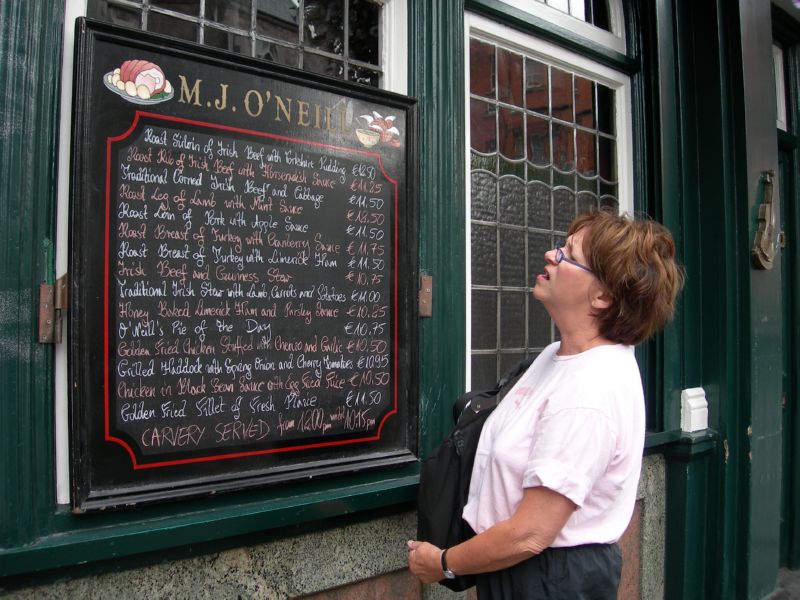 M.J. O'NEILL
Roast Sirloin of Irish Beef with Yorkshire Pudding €12.90
Roast Rib of Irish Beef with Horseradish Sauce €11.85
Traditional Corned Irish Beef and Cabbage €11.50
Roast Leg of Lamb with Mint Sauce €12.50
Roast Loin of Pork with Apple Sauce €11.50
Roast Breast of Turkey with Cranberry Sauce €11.75
Roast Breast of Turkey with Limerick Ham €11.50
Irish Beef and Guinness Stew €10.75
Traditional Irish Stew with Lamb Carrots and Potatoes €11.00
Honey Baked Limerick Ham and Parsley Sauce €10.85
O'Neill's Pie of the Day €10.75
Golden Fried Chicken Stuffed with Chorizo and Garlic €10.50
Grilled Haddock with Spring Onion and Cherry Tomatoes €10.95
Chicken in Black Bean Sauce with Egg Fried Rice €10.50
Golden Fried Fillet of Fresh Plaice €11.50
CARVERY SERVED from 12.00pm until 10.15pm